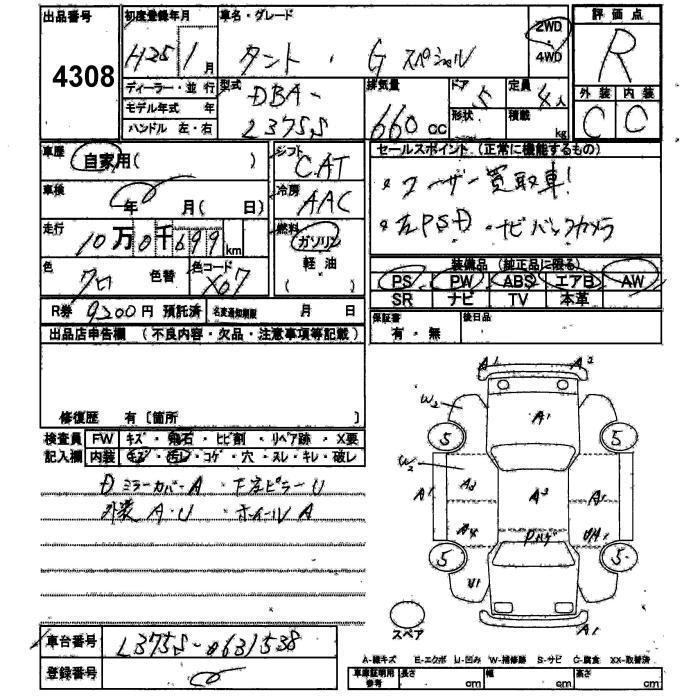 出品番号 4308
初度登録年月 H25 1月
車名・グレード タント・G スペシャル
2WD
4WD
評価点 R
外装 内装
C C
ディーラー・並行
モデル年式 年
ハンドル 左・右
型式 DBA-
L375S
排気量 660 CC
ドア 5
形状
定員 4人
積載 kg
車歴 自家用( )
車検 年 月( 日)
走行 10万0千699km
色 クロ 色替 色コード X07
シフト CAT
冷房 AAC
燃料 ガソリン
軽油
( )
セールスポイント (正常に機能するもの)
・ユーザー買取車!
・左PSD ・ナビバックカメラ
装備品 (純正品に限る)
PS PW ABS エアB AW
SR ナビ TV 本革
R券 9200円 預託済 名変通知期限 月 日
保証書 有・無 後日品
出品店申告欄 (不良内容・欠品・注意事項等記載)
修復歴 有〔箇所 〕
検査員 FW キズ・飛石・ヒビ割・リペア跡・X要
記入欄 内装 キズ・汚レ・コゲ・穴・スレ・キレ・破レ
Dミラーカバー A 下左ピラー U
外装 A・U ホイール A
A1 A2
W2 A1
5 5
W2 A1 A2 A3 A1
5 5
U1
A1
スペア
車台番号 L375S-0631538
登録番号
A-線キズ E-エクボ U-凹み W-補修跡 S-サビ C-腐食 XX-取替済
車庫証明用参考 長さ cm 幅 cm 高さ cm